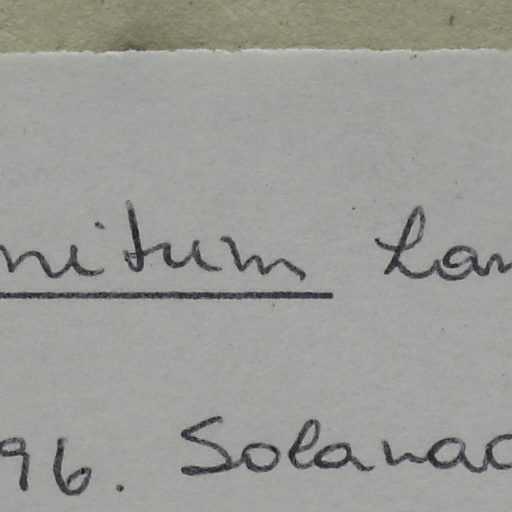 nitum Lam
96. Solanac